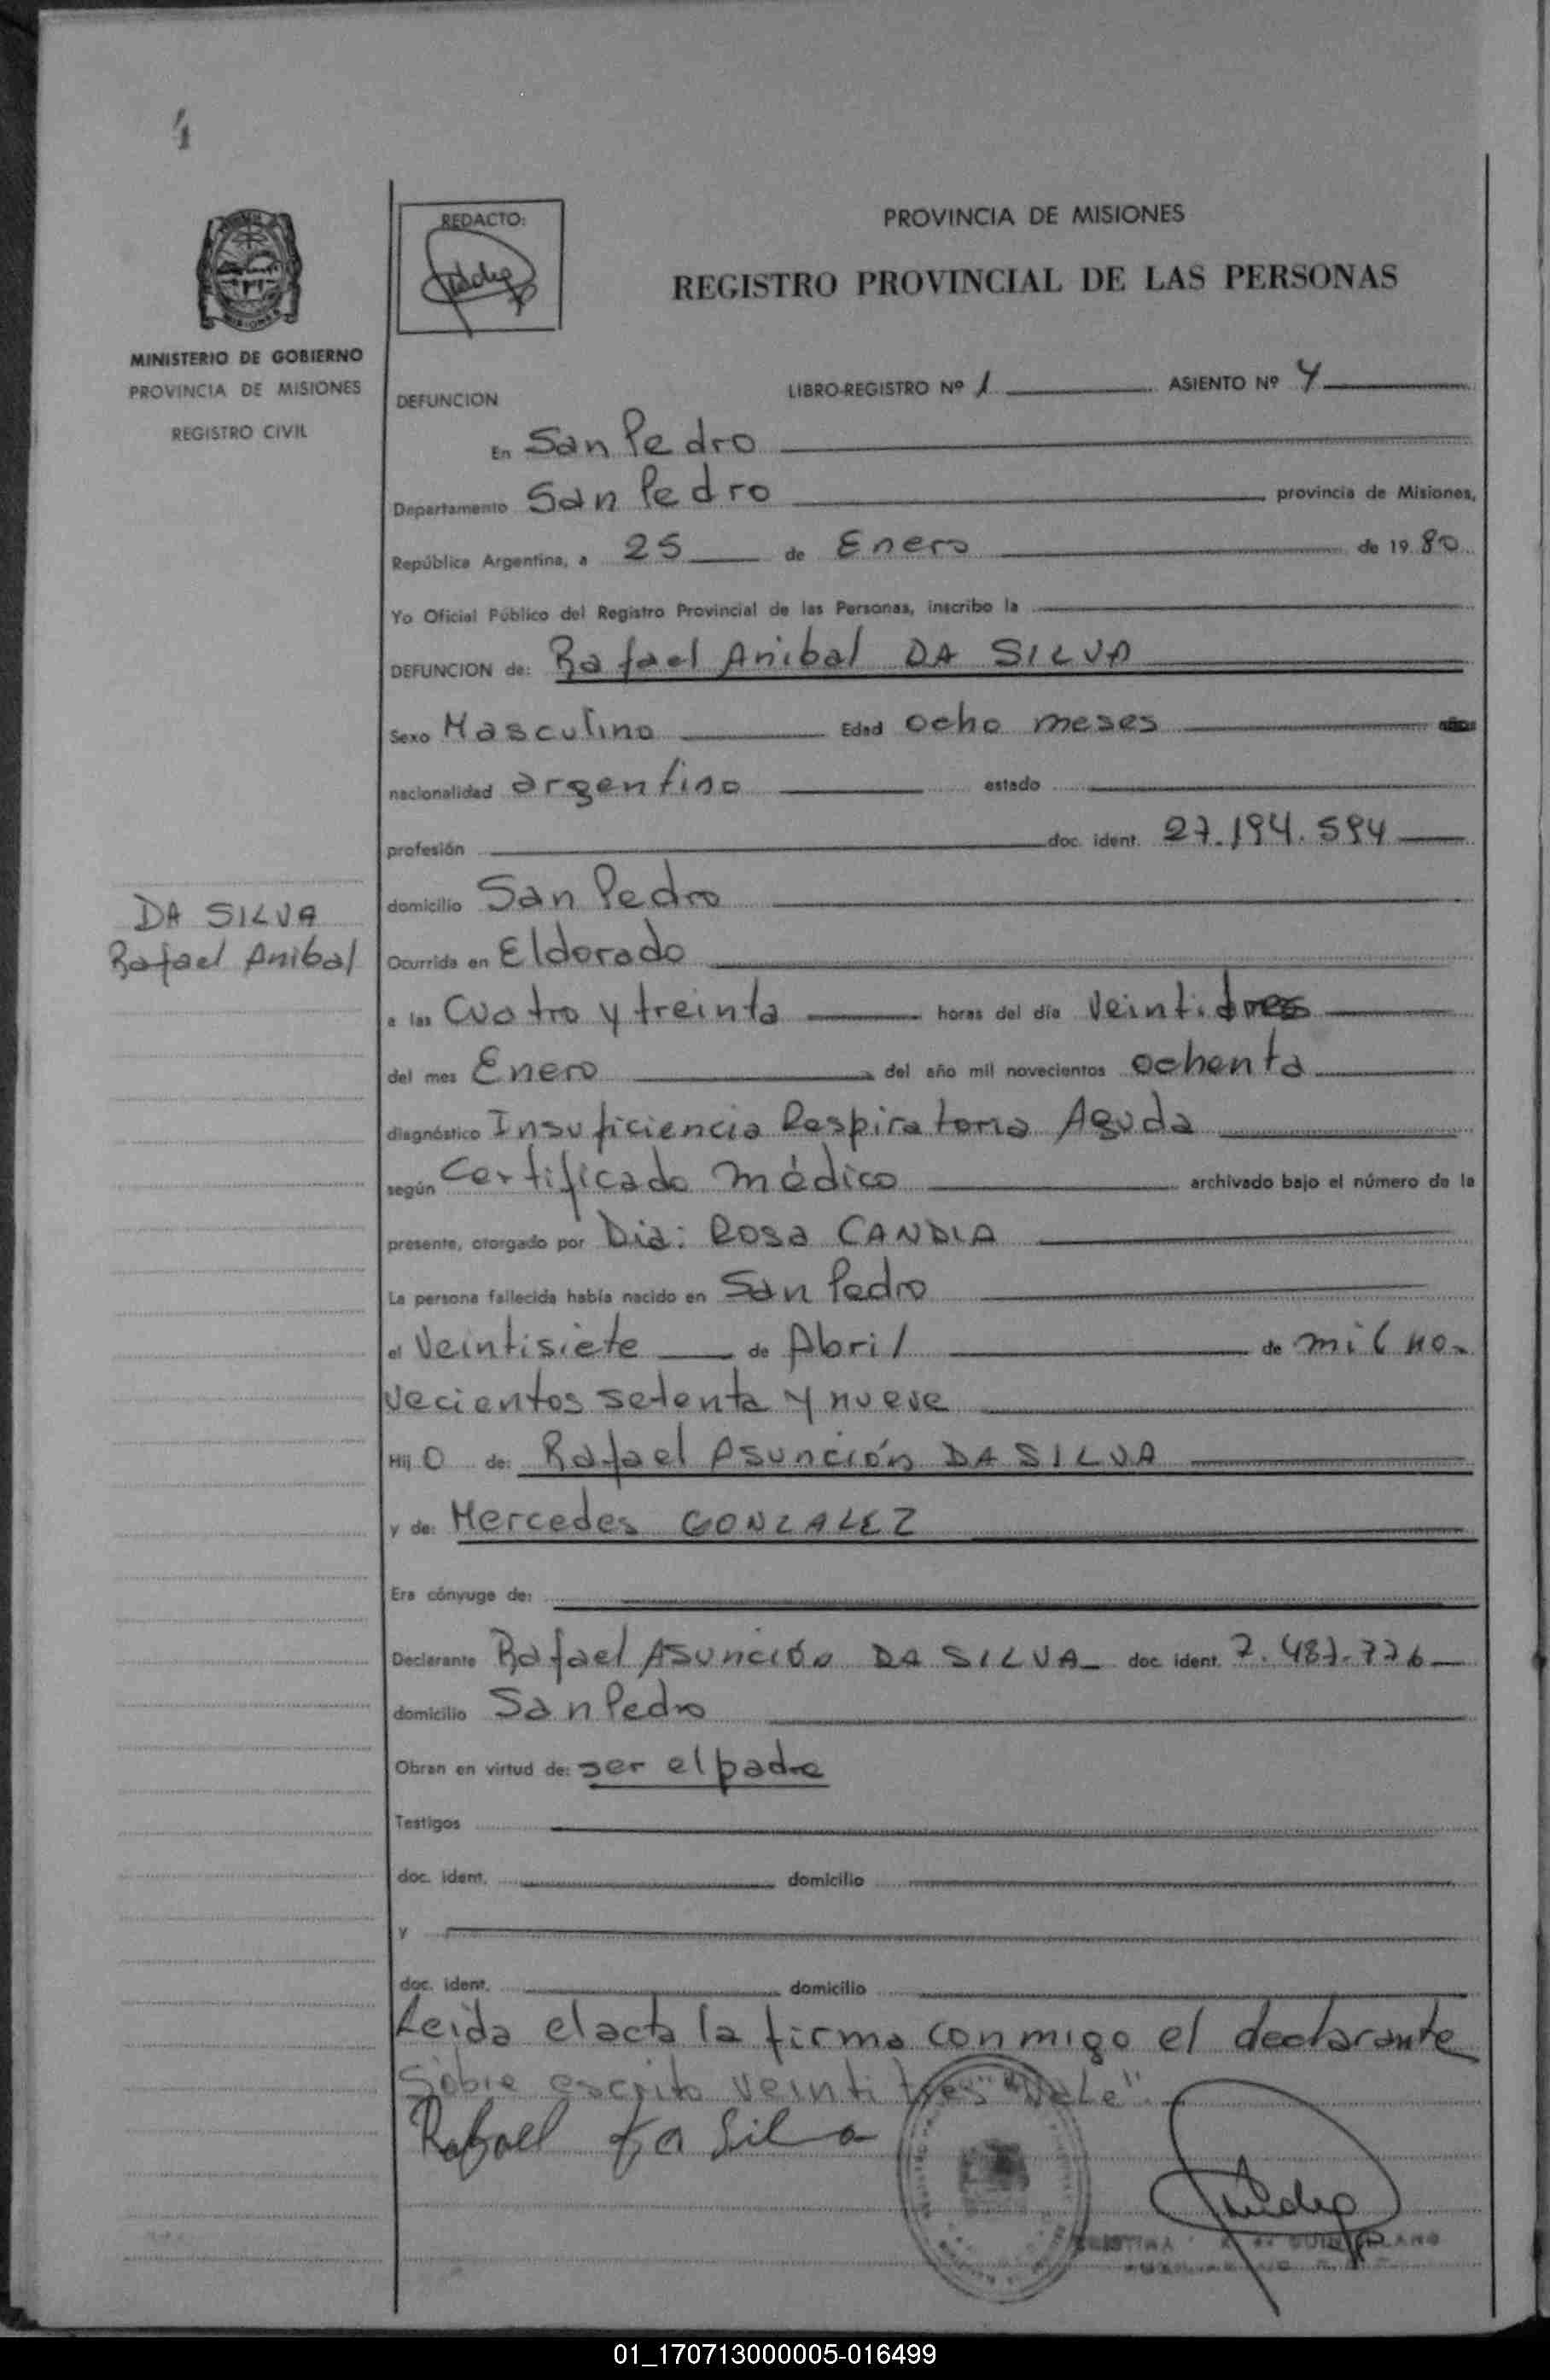 4
REDACTO:
PROVINCIA DE MISIONES
REGISTRO PROVINCIAL DE LAS PERSONAS
MISIONES
MINISTERIO DE GOBIERNO
PROVINCIA DE MISIONES
REGISTRO CIVIL
LIBRO-REGISTRO Nº 1 ASIENTO Nº 4
DEFUNCION
En San Pedro
Departamento San Pedro provincia de Misiones,
República Argentina, a 25 de Enero de 19 80
Yo Oficial Público del Registro Provincial de las Personas, inscribo la
DEFUNCION de: Rafael Anibal DA SILVA
Sexo Masculino Edad ocho meses
nacionalidad argentino estado
profesión doc. ident. 27.194.594
domicilio San Pedro
DA SILVA
Rafael Anibal
Ocurrida en Eldorado
a las Cuatro y treinta horas del día Veintitres
del mes Enero del año mil novecientos ochenta
diagnóstico Insuficiencia Respiratoria Aguda
según Certificado médico archivado bajo el número de la
presente, otorgado por Dra: Rosa CANDIA
La persona fallecida había nacido en San Pedro
el Veintisiete de Abril de mil no-
vecientos setenta y nueve
Hij O de: Rafael Asunción DA SILVA
y de: Mercedes GONZALEZ
Era cónyuge de:
Declarante Rafael Asunción DA SILVA doc. ident. 7.487.776
domicilio San Pedro
Obran en virtud de: ser el padre
Testigos
doc. ident. domicilio
y
doc. ident. domicilio
Leida el acta la firma conmigo el declarante
Sobre escrito veinti tres "Vale"
Rafael Da Silva
01_170713000005-016499